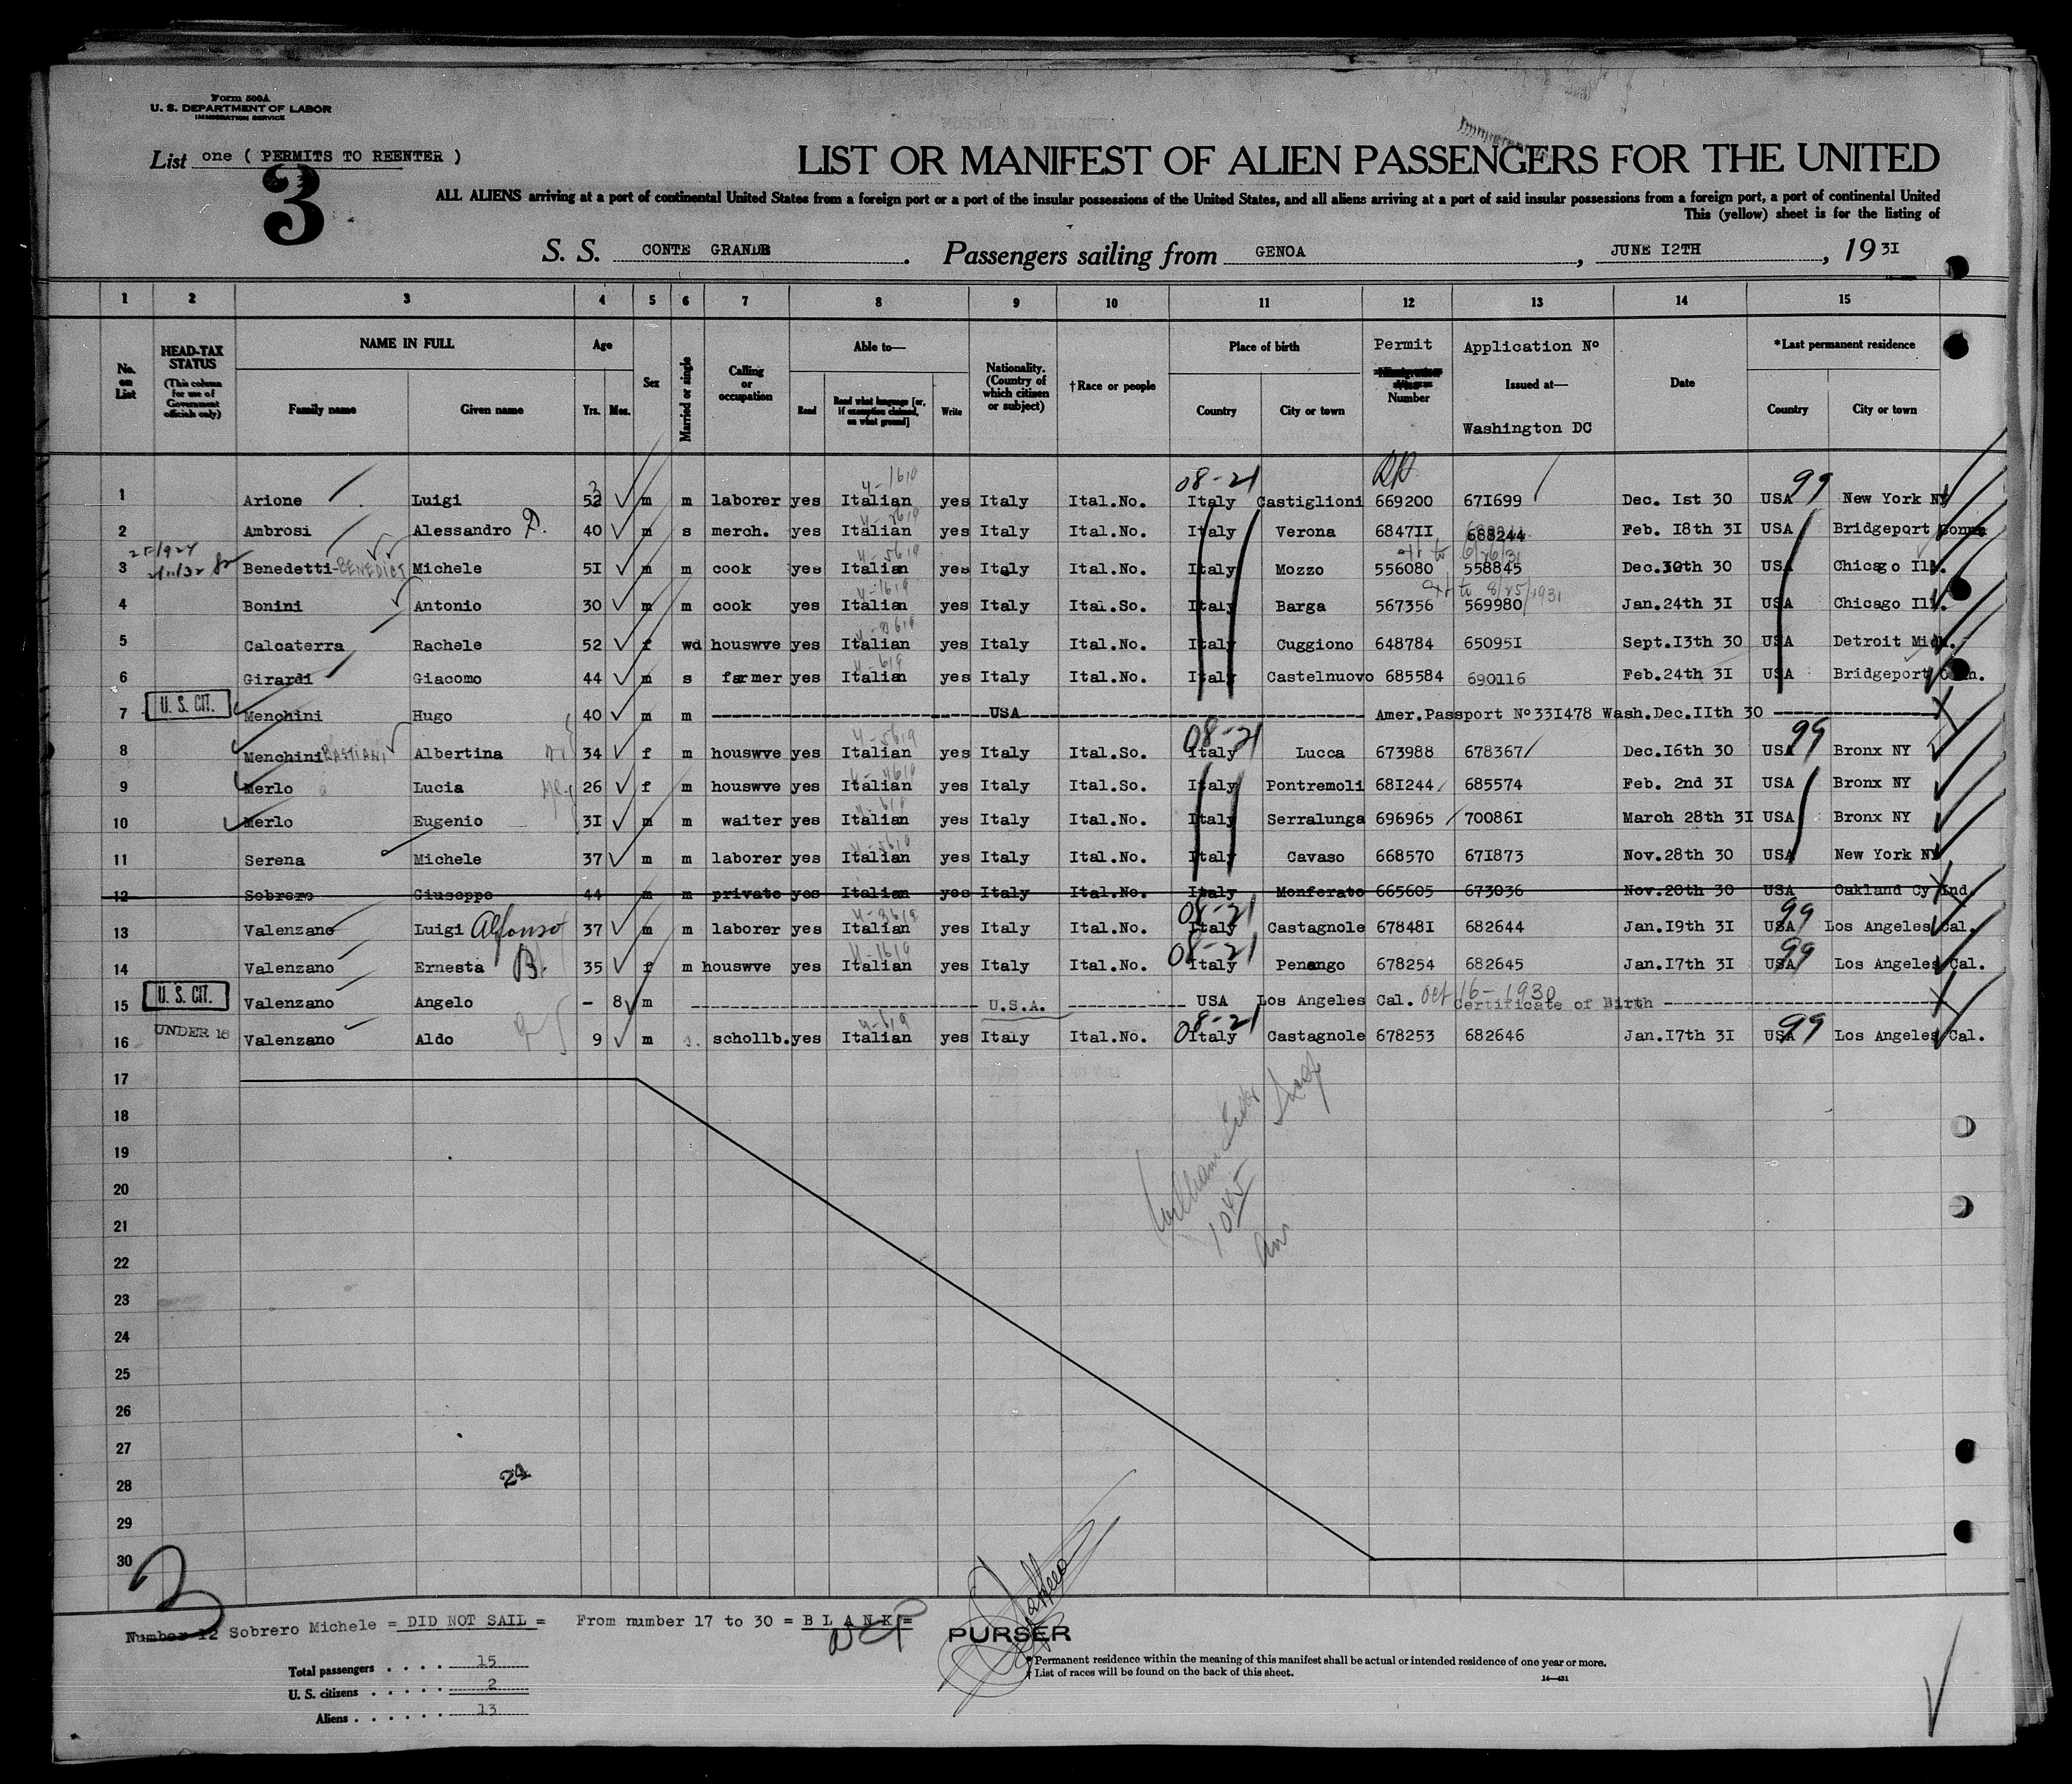 Form 500A
U. S. DEPARTMENT OF LABOR
IMMIGRATION SERVICE
List one ( PERMITS TO REENTER )
3
LIST OR MANIFEST OF ALIEN PASSENGERS FOR THE UNITED
ALL ALIENS arriving at a port of continental United States from a foreign port or a port of the insular possessions of the United States, and all aliens arriving at a port of said insular possessions from a foreign port, a port of continental United
This (yellow) sheet is for the listing of
S. S. CONTE GRANDE . Passengers sailing from GENOA , JUNE I2TH , 19 3I
1 2 3 4 5 6 7 8 9 10 11 12 13 14 15
No. on List
HEAD-TAX STATUS (This column for use of Government officials only)
NAME IN FULL
Family name Given name
Age
Yrs. Mos.
Sex
Married or single
Calling or occupation
Able to—
Read
Read what language [or, if exemption claimed, on what ground]
Write
Nationality. (Country of which citizen or subject)
†Race or people
Place of birth
Country City or town
Permit Number
Application No
Issued at—
Washington DC
Date
*Last permanent residence
Country City or town
1 Arione Luigi 52 3 m m laborer yes Italian yes Italy Ital.No. 08-21 Italy Castiglioni 669200 67I699 Dec. Ist 30 USA 99 New York NY
2 Ambrosi Alessandro D. 40 m s merch. yes Italian yes Italy Ital.No. Italy Verona 6847II 688244 Feb. I8th 3I USA Bridgeport Conn
3 Benedetti-BENEDICT Michele 5I m m cook yes Italian yes Italy Ital.No. Italy Mozzo 556080 558845 Dec.30th 30 USA Chicago Ill.
4 Bonini Antonio 30 m m cook yes Italian yes Italy Ital.So. Italy Barga 567356 569980 ext to 8/25/1931 Jan.24th 3I USA Chicago Ill.
5 Calcaterra Rachele 52 f wd houswve yes Italian yes Italy Ital.No. Italy Cuggiono 648784 65095I Sept.I3th 30 USA Detroit Mich.
6 Girardi Giacomo 44 m s farmer yes Italian yes Italy Ital.No. Italy Castelnuovo 685584 690116 Feb.24th 3I USA Bridgeport Conn.
U. S. CIT.
7 Menchini Hugo 40 m m USA Amer.Passport No 33I478 Wash.Dec.IIth 30
8 Menchini BASTIANI Albertina 34 f m houswve yes Italian yes Italy Ital.So. 08-21 Italy Lucca 673988 678367 Dec.I6th 30 USA 99 Bronx NY
9 Merlo Lucia 26 f m houswve yes Italian yes Italy Ital.So. Italy Pontremoli 68I244 685574 Feb. 2nd 3I USA Bronx NY
10 Merlo Eugenio 3I m m waiter yes Italian yes Italy Ital.No. Italy Serralunga 696965 70086I March 28th 3I USA Bronx NY
11 Serena Michele 37 m m laborer yes Italian yes Italy Ital.No. Italy Cavaso 668570 67I873 Nov.28th 30 USA New York NY
12 Sobrero Giuseppe 44 m m private yes Italian yes Italy Ital.No. Italy Monferato 665605 673036 Nov.20th 30 USA Oakland Cy Ind.
13 Valenzano Luigi Alfonso 37 m m laborer yes Italian yes Italy Ital.No. 08-21 Italy Castagnole 67848I 682644 Jan.I9th 3I USA 99 Los Angeles Cal.
14 Valenzano Ernesta B. 35 f m houswve yes Italian yes Italy Ital.No. 08-21 Italy Penango 678254 682645 Jan.I7th 3I USA 99 Los Angeles Cal.
U. S. CIT.
15 Valenzano Angelo - 8 m U.S.A. USA Los Angeles Cal. Oct 16-1930 Certificate of Birth
UNDER 16
16 Valenzano Aldo 9 m s. schollb. yes Italian yes Italy Ital.No. 08-21 Italy Castagnole 678253 682646 Jan.I7th 3I USA 99 Los Angeles Cal.
17
18
19
20
21
22
23
24
25
26
27
28
29
30
24
Number 12 Sobrero Michele = DID NOT SAIL = From number 17 to 30 = B L A N K =
PURSER
Total passengers . . . . 15
U. S. citizens . . . . . 2
Aliens . . . . . . 13
* Permanent residence within the meaning of this manifest shall be actual or intended residence of one year or more.
† List of races will be found on the back of this sheet.
14—431